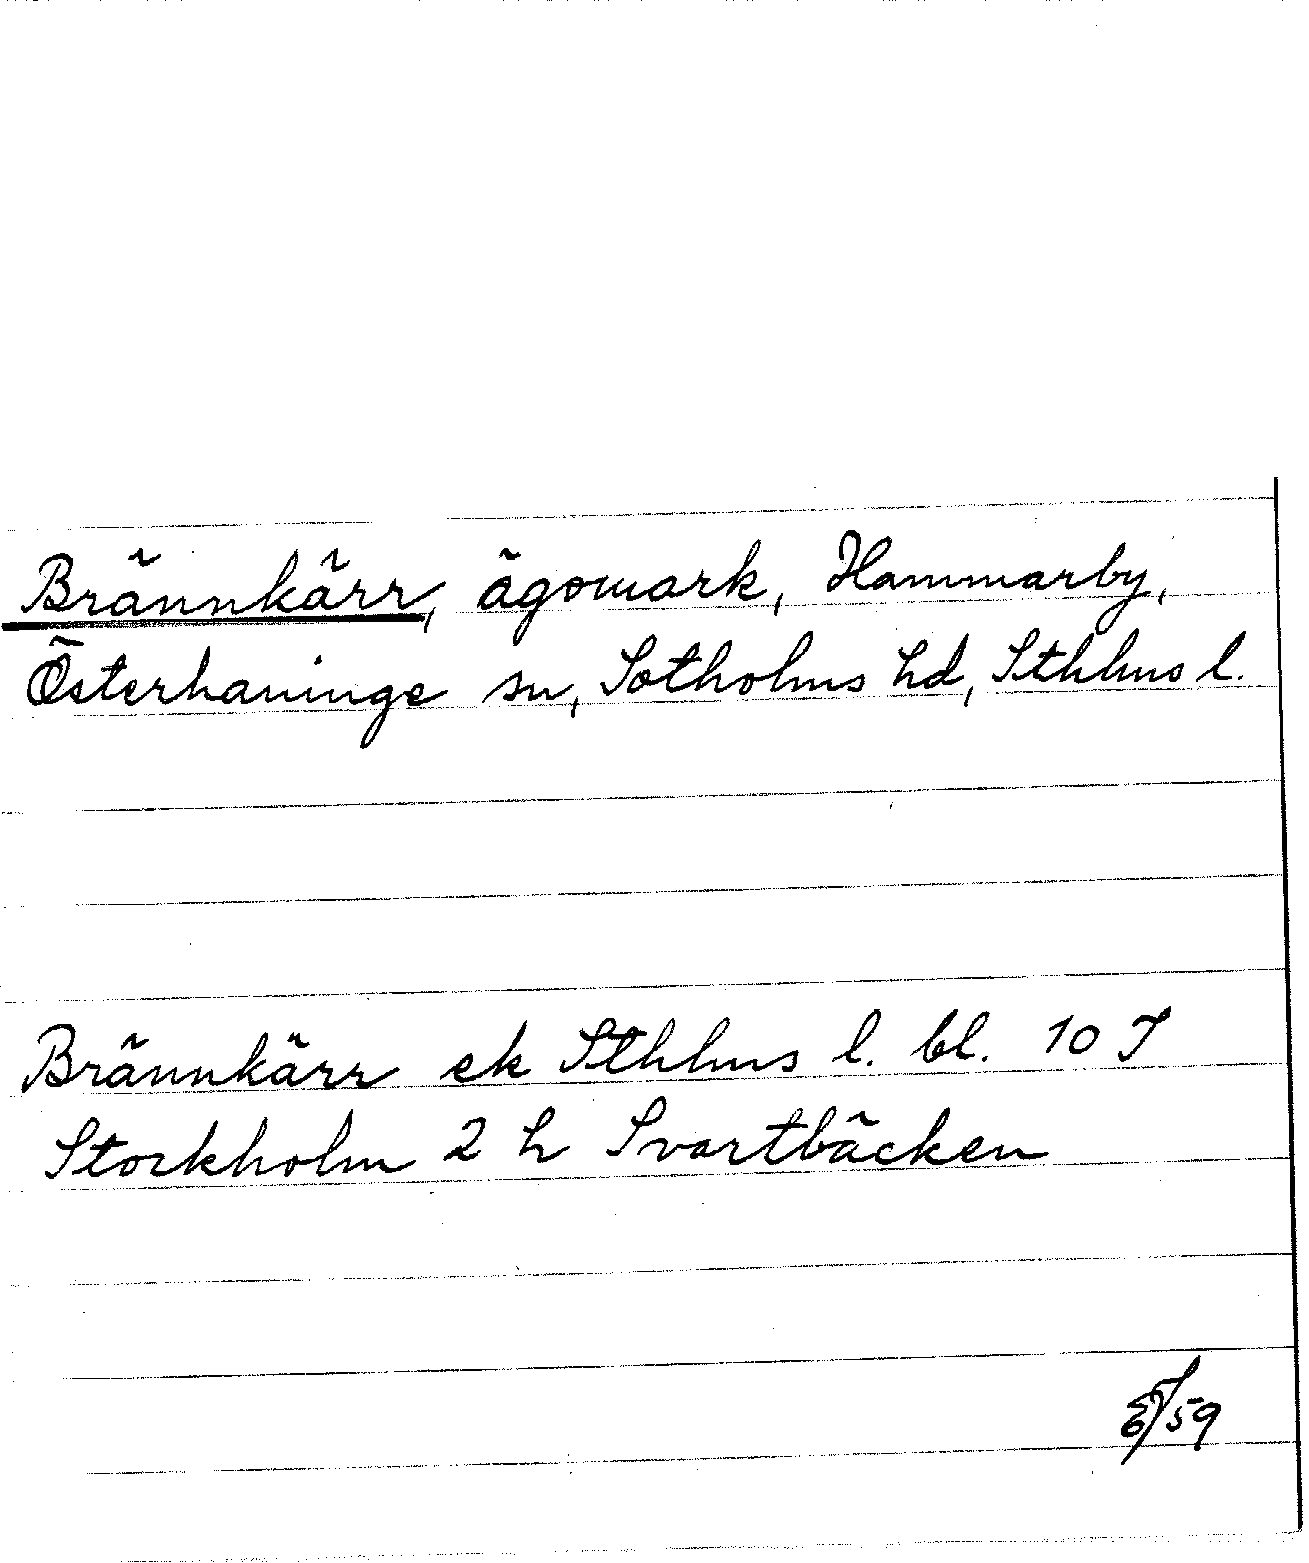 Brännkärr, ägomark, Hammarby,
Österhaninge sn, Sotholms hd, Sthlms l.
Brännkärr ek Sthlms l. bl. 10 I
Stockholm 2 h Svartbäcken
/59